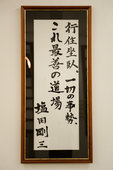 行住坐臥、一切の事勢、
これ最善の道場
塩田剛三